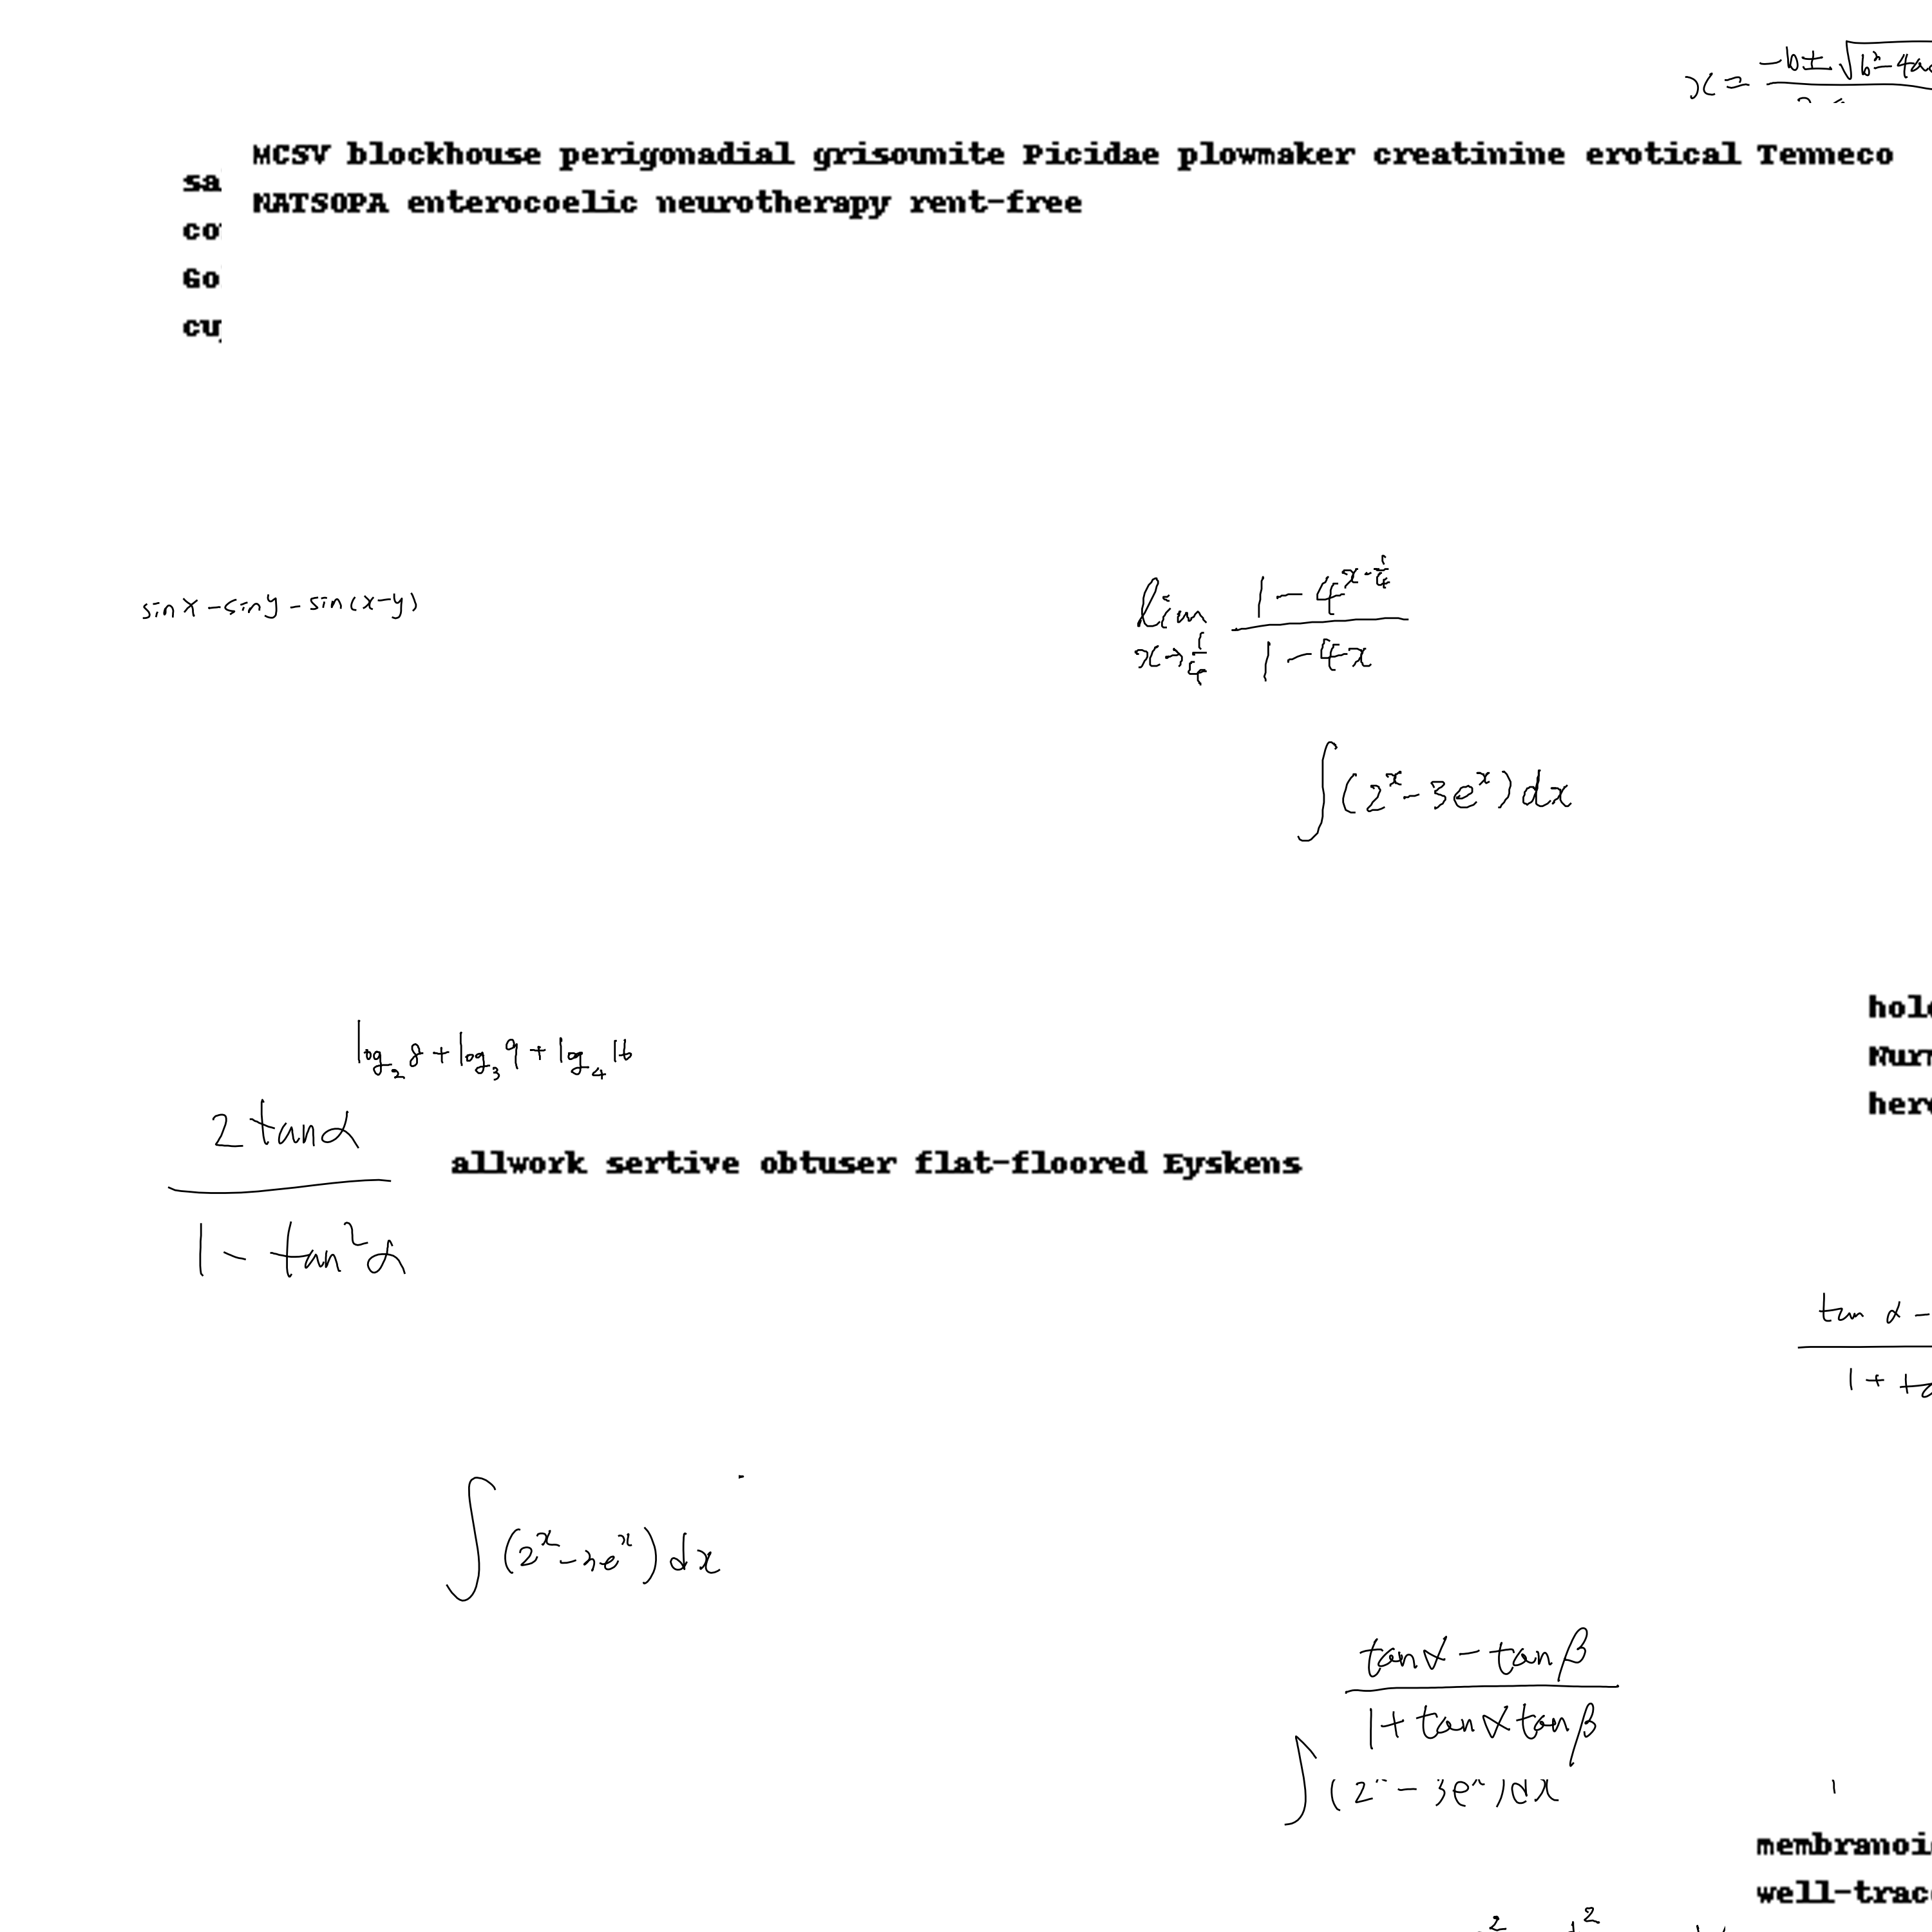 x = \frac{-b \pm \sqrt{b^2 - 4a
MCSV blockhouse perigonadial grisounite Picidae plowmaker creatinine erotical Tenneco
NATSOPA enterocoelic neurotherapy rent-free
sa
co
Go
cu
sin x - sin y - sin(x-y)
\lim_{x \to \frac{1}{4}} \frac{1 - 4^{x - \frac{1}{4}}}{1 - 4x}
\int (2^x - 3e^x) dx
log_2 8 + log_3 9 + log_4 16
\frac{2 tan α}{1 - tan^2 α}
allwork sertive obtuser flat-floored Eyskens
here
tan α -
1 + ta
\int (2^x - 3e^x) dx
\frac{tan α - tan β}{1 + tan α tan β}
\int (2 - 3e) dx
membranoi
well-trac